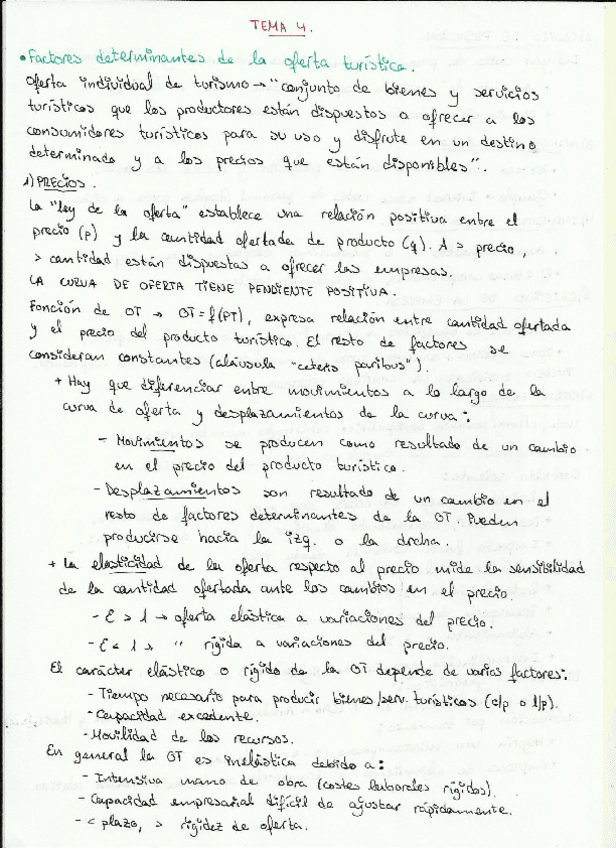 TEMA 4.
• Factores determinantes de la oferta turística.
Oferta individual de turismo → "conjunto de bienes y servicios
turísticos que los productores están dispuestos a ofrecer a los
consumidores turísticos para su uso y disfrute en un destino
determinado y a los precios que están disponibles".
1) PRECIOS.
La "ley de la oferta" establece una relación positiva entre el
precio (p) y la cantidad ofertada de producto (q). A > precio,
> cantidad están dispuestas a ofrecer las empresas.
LA CURVA DE OFERTA TIENE PENDIENTE POSITIVA.
Función de OT → OT = f(PT), expresa relación entre cantidad ofertada
y el precio del producto turístico. El resto de factores se
consideran constantes (cláusula "ceteris paribus").
+ Hay que diferenciar entre movimientos a lo largo de la
curva de oferta y desplazamientos de la curva:
- Movimientos se producen como resultado de un cambio
en el precio del producto turístico.
- Desplazamientos son resultado de un cambio en el
resto de factores determinantes de la OT. Pueden
producirse hacia la izq. o la drcha.
+ La elasticidad de la oferta respecto al precio mide la sensibilidad
de la cantidad ofertada ante los cambios en el precio.
- E > 1 → oferta elástica a variaciones del precio.
- E < 1 → " rígida a variaciones del precio.
El carácter elástico o rígido de la OT depende de varios factores:
- Tiempo necesario para producir bienes/serv. turísticos (c/p o l/p).
- Capacidad excedente.
- Movilidad de los recursos.
En general la OT es inelástica debido a:
- Intensiva mano de obra (costes laborales rígidos).
- Capacidad empresarial difícil de ajustar rápidamente.
- < plazo, > rigidez de oferta.